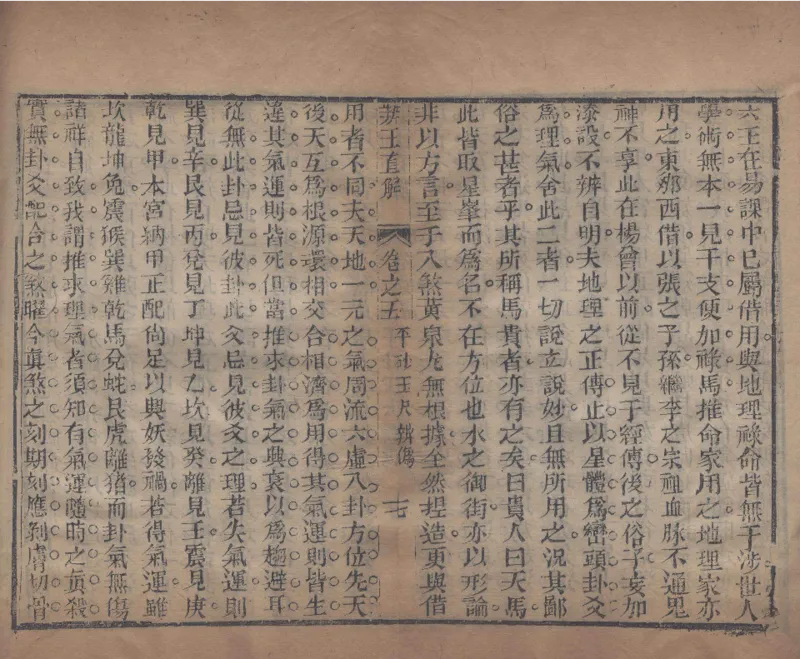 六壬在易課中巳屬借用與地理祿命皆無干涉世人
學術無本一見干支便加祿馬推命家用之地理家亦
用之東那西借以張之子孫繼李之宗祖血脉不通鬼
神不享此在楊曾以前從不見于經傳後之俗子妄加
添設不辨自明夫地理之正傳止以星體為巒頭卦爻
為理氣舍此二者一切說立說妙且無所用之況其鄙
俗之甚者乎其所稱馬貴者亦有之矣曰貴人曰天馬
此皆取星峯而為名不在方位也水之御街亦以形論
非以方言至于八煞黃泉尤無根據全然揑造更與借
辨正直解
卷之五
平砂玉尺辨偽
十七
用者不同夫天地一元之氣周流六虛八卦方位先天
後天互為根源環相交合相濟為用得其氣運則皆生
違其氣運則皆死但當推求卦氣之興衰以為趨避耳
從無此卦忌見彼卦此爻忌見彼爻之理若失氣運則
巽見辛艮見丙兌見丁坤見乙坎見癸離見壬震見庚
乾見甲本宮納甲正配尚足以與妖發禍若得氣運雖
坎龍坤兔震猴巽雞乾馬兌蛇艮虎離猪而卦氣無傷
諸祥自致我謂推求理氣者須知有氣運隨時之真殺
實無卦爻配合之煞曜今真煞之刻期刻應剝膚切骨